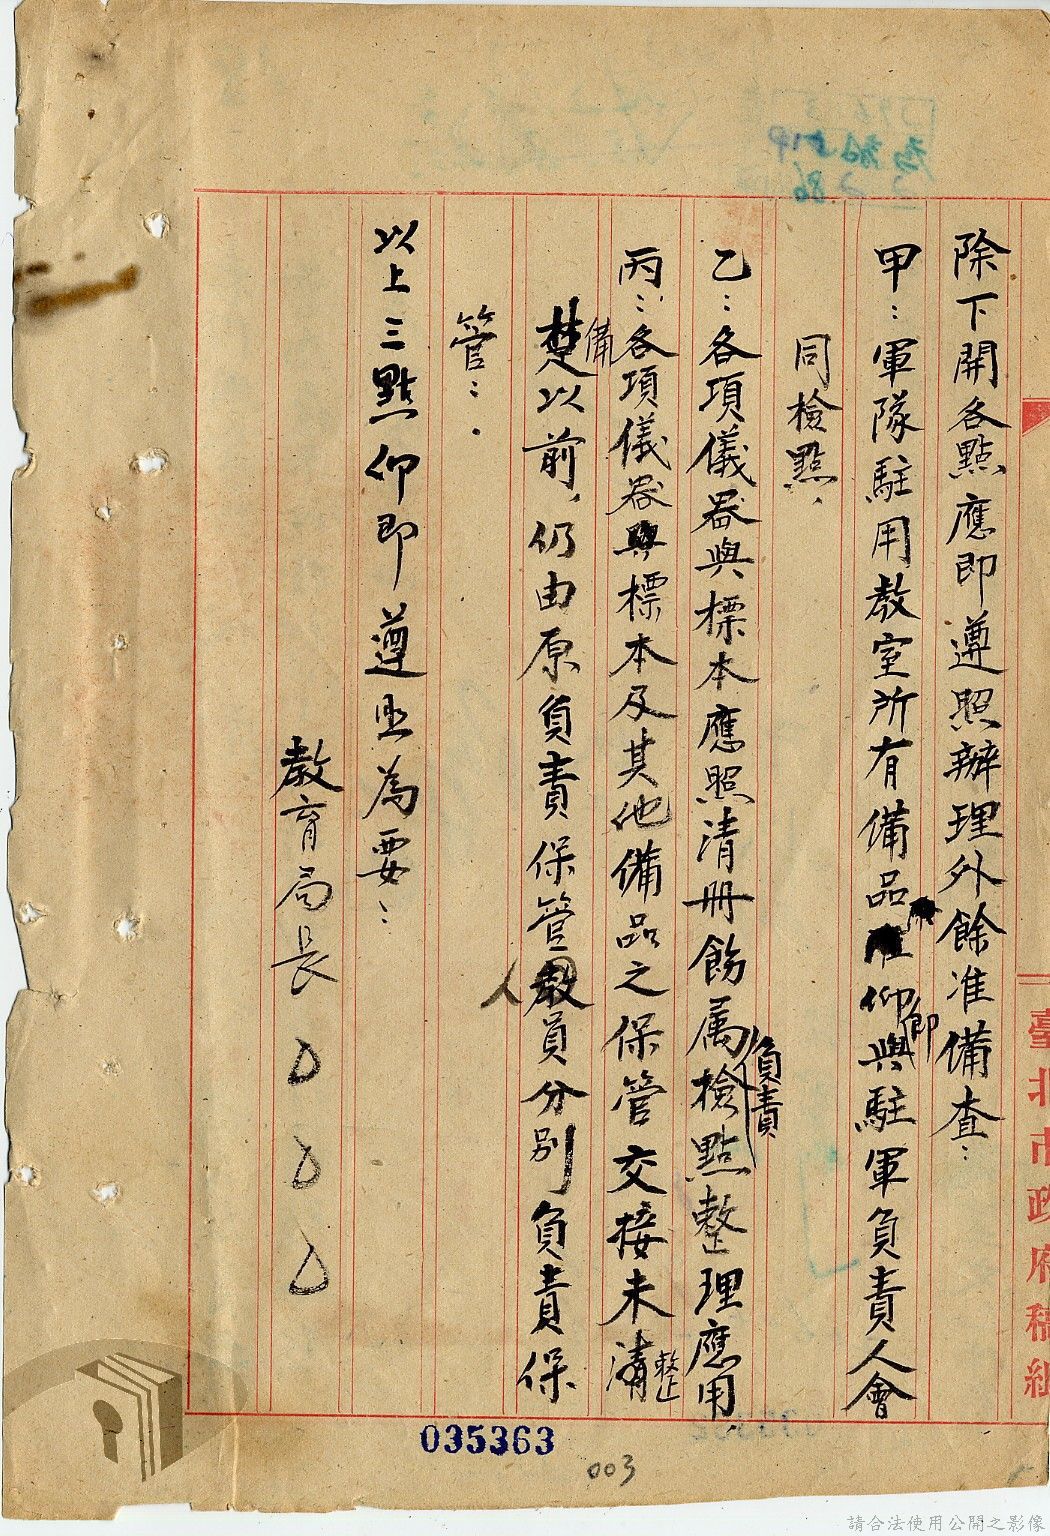 除下開各點應即遵照辦理外餘准備查：
甲：軍隊駐用教室所有備品仰即與駐軍負責人會
同檢點，
乙：各項儀器與標本應照清冊飭属負責檢點整理應用，
丙：各項儀器與標本及其他備品之保管交接未清整
楚備以前，仍由原負責保管人員分別負責保
管：．
以上三點仰即遵照為要：
教育局長
臺北市政府稿紙
035363
003
請合法使用公開之影像